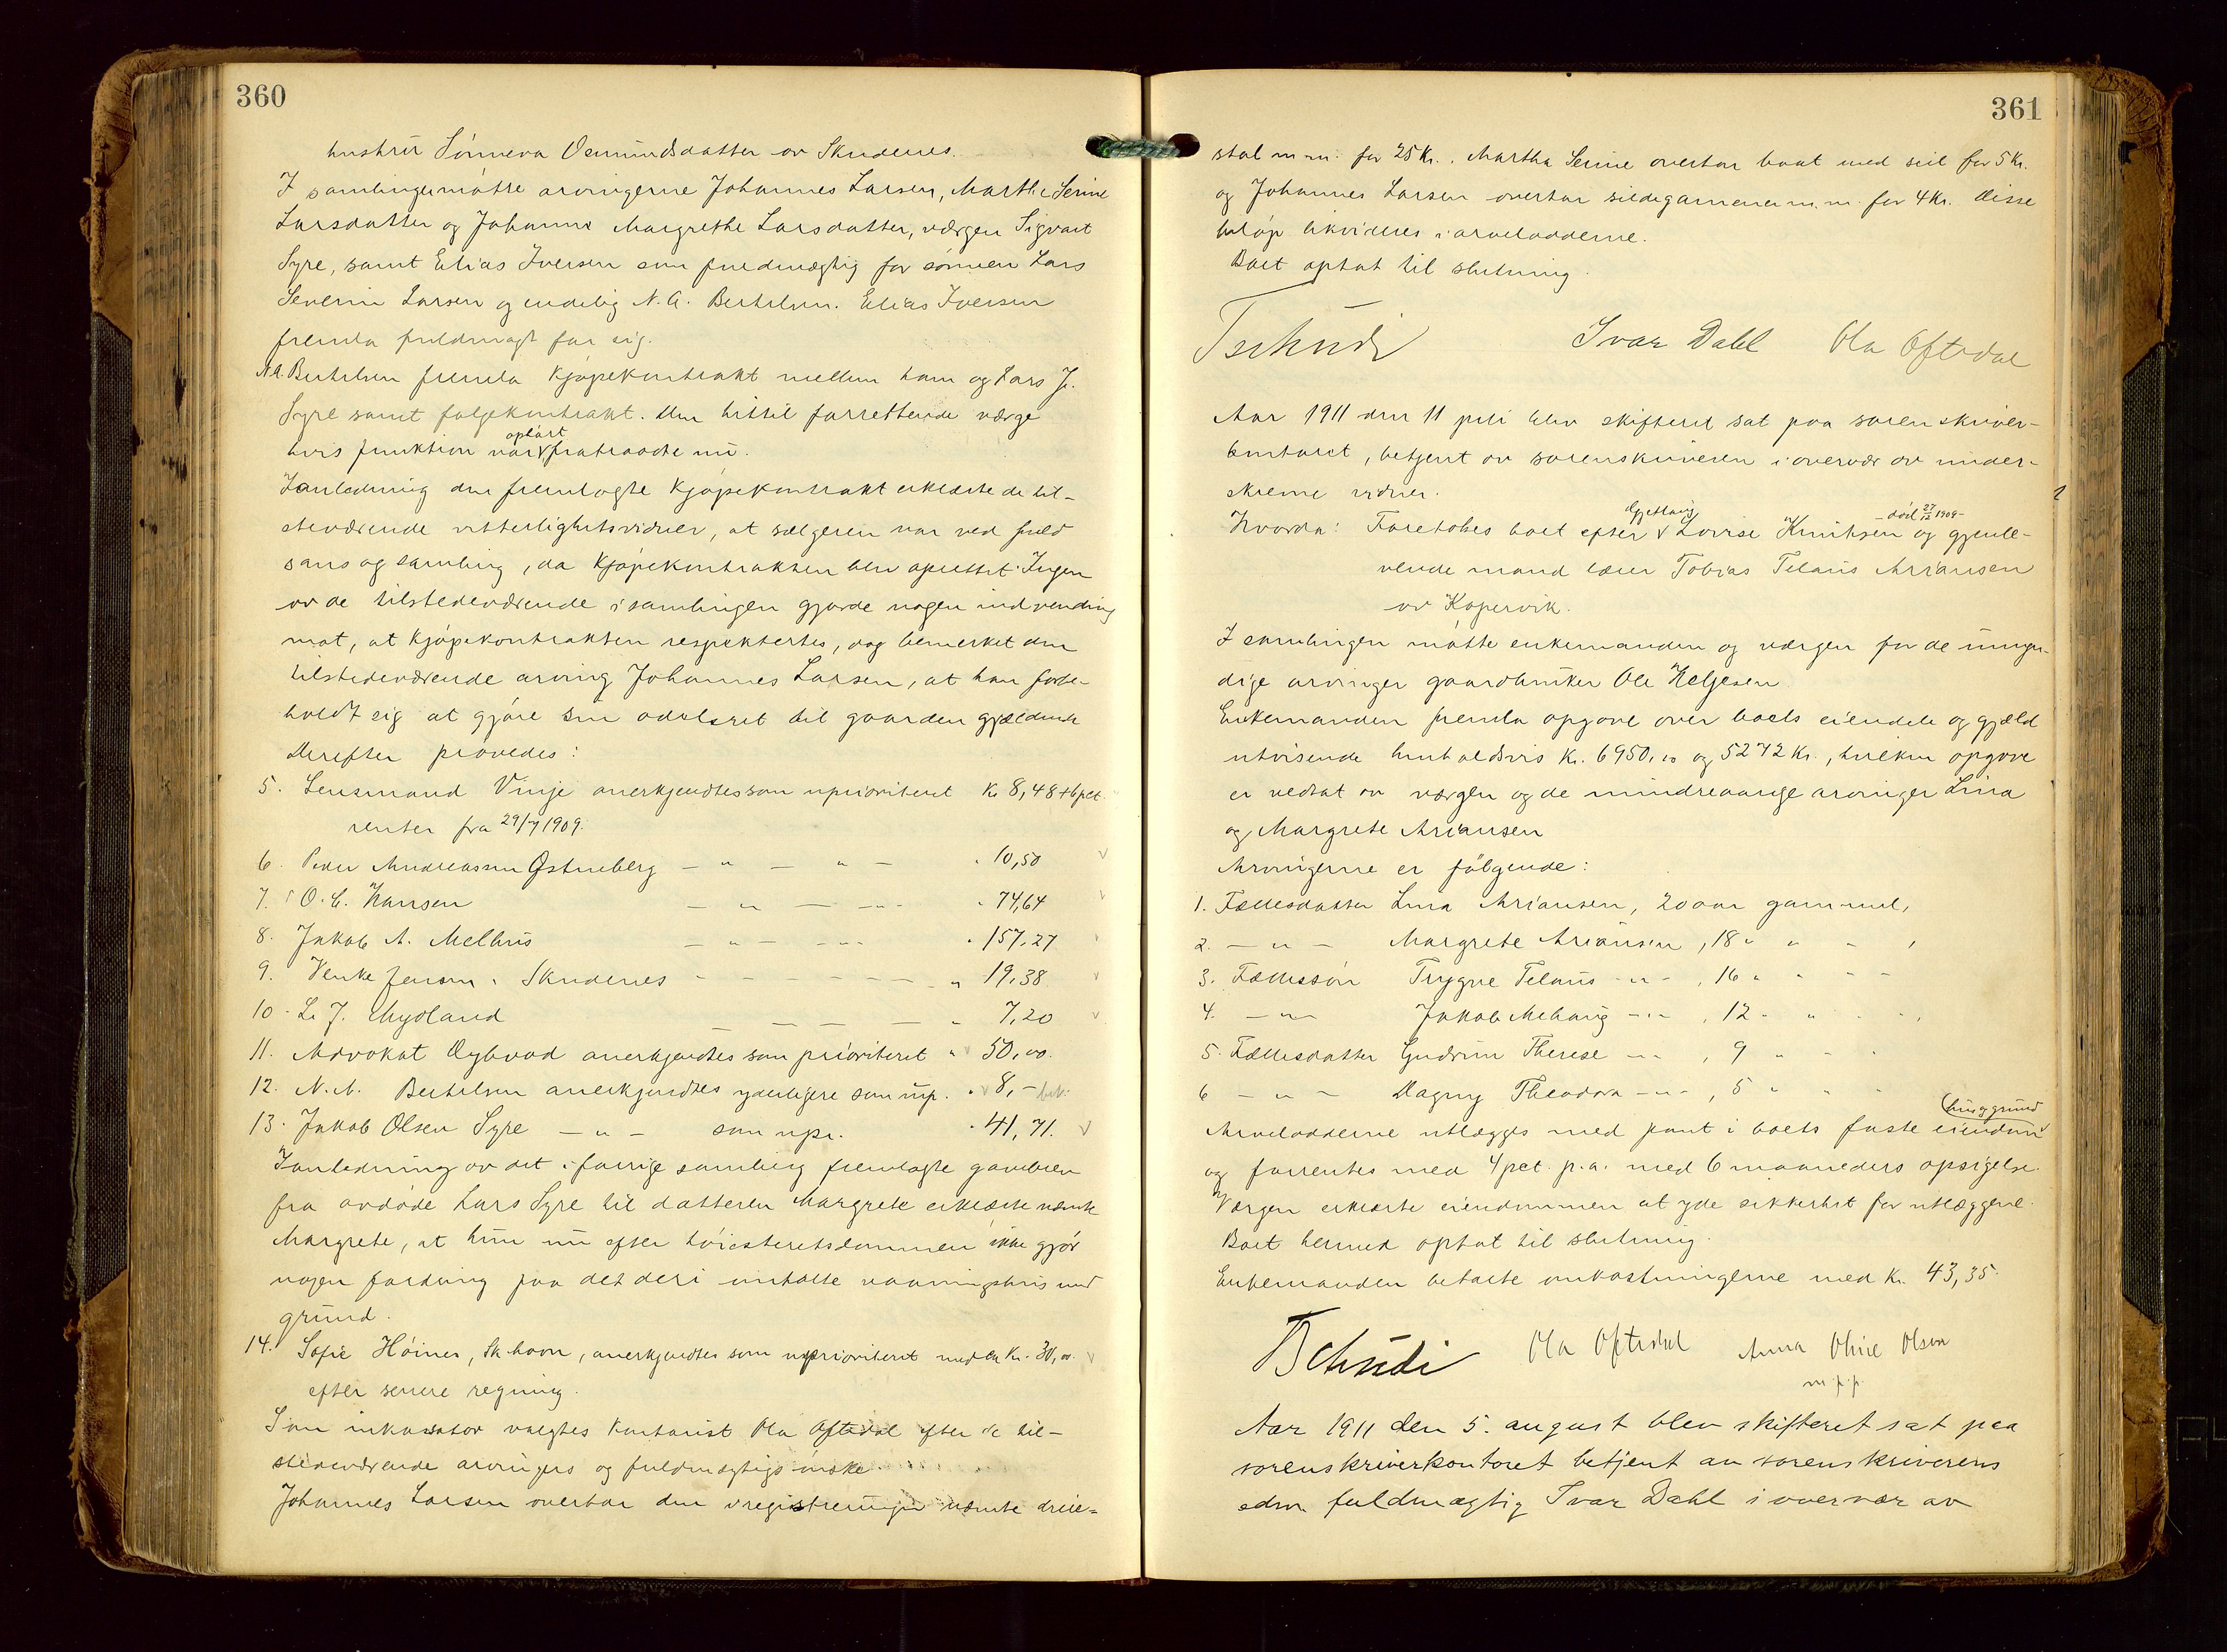 360
hustru Sønneva Osmundsdatter av Skudenes.
I samlingen møtte arvingerne Johannes Larsen, Marthe Serine
Larsdatter og Johanne Margrethe Larsdatter, værgen Sigvart
Syre, samt Elias Iversen som fuldmægtig for sønnen Lars
Severin Larsen og endelig N. A. Bertelsen. Elias Iversen
fremla fuldmagt for sig.
N. A. Bertelsen fremla kjøpekontrakt mellem ham og Lars J.
Syre samt følgekontrakt. Den hittil forrettende værge
hvis funktion var ophørt fratraadte nu.
I anledning den fremlagte kjøpekontrakt erklærte de til-
steværende vitterlighetsvidner, at sælgeren var ved fuld
sans og samling, da kjøpekontrakten blev oprettet. Ingen
av de tilstedeværende i samlingen gjorde nogen indvending
mot, at kjøpekontrakten respektertes, dog bemerket den
tilstedeværende arving Johannes Larsen, at han forbe-
holdt sig at gjøre sin odelsret til gaarden gjældende
Derefter prøvedes:
5. Lensmand Vinje anerkjendtes som uprioritert Kr 8,48 + 6 pct.
renter fra 29/7 1909.
6. Peder Andreassen Østneberg — " — " — " 10,50
7. O. C. Hansen — " — " — " 74,64
8. Jakob A. Melhus — " — " — " 157,27
9. Venke Jensen, Skudenes — " — — — " 19,38
10. L. J. Mydland — — — — " 7,20
11. Advokat Dybvad anerkjendtes som prioritert " 50,00.
12. N. A. Bertelsen anerkjendtes yderligere som up. " 8,-
13. Jakob Olsen Syre — " — som upr. " 41,71.
I anledning av det i forrige samling fremlagte gavebrev
fra avdøde Lars Syre til datteren Margrete erklærte nævnte
Margrete, at hun nu efter høiesteretsdommen ikke gjør
nogen fordring paa det deri omtalte vaaningshus med
grund.
14. Sofie Høiner, Sk.havn, anerkjendtes som uprioritert med Kr. 30,00
efter senere regning.
Som inkassator valgtes kontorist Ola Oftedal efter de til-
stedeværende arvingers og fuldmægtigs ønske.
Johannes Larsen overtar den i registreringen nævnte dreie-
361
stol m.m. for 25 Kr., Martha Serine overtar baat med seil for 5 Kr.
og Johannes Larsen overtar sildegarnene m.m. for 4 Kr. Disse
beløp likvideres i arveloddene.
Boet optat til slutning.
Tschudi Ivar Dahl Ola Oftedal
Aar 1911 den 11 juli blev skifteret sat paa sorenskriver-
kontoret, betjent av sorenskriveren i overvær av under-
skrevne vidner.
Hvorda: Foretokes boet efter Lovise Knutsen død 27/12 1909 og gjenle-
vende mand lærer Tobias Telaus Ariansen
av Kopervik.
I samlingen møtte enkemanden og værgen for de umyn-
dige arvinger gaardbruker Ole Heljesen
Enkemanden fremla opgave over boets eiendele og gjæld
utvisende henholdsvis Kr. 6950,00 og 5272 Kr., hvilken opgave
er vedtat av værgen og de mindreaarige arvinger Lina
og Margrete Ariansen
Arvingerne er følgende:
1. Fællesdatter Lina Ariansen, 20 aar gammel,
2. — " — Margrete Ariansen, 18 " " — ,
3. Fællessøn Trygve Telaus — " — , 16 " " — "
4. — " — Jakob Mehaug — " — , 12 " " — " ,
5. Fællesdatter Gudrun Therese — " , 9 " " "
6 — " — Dagny Theodora — " — , 5 " " "
Arveloddene utlægges med pant i boets faste eiendom (hus og grund
og forrentes med 4 pct. p.a. med 6 maaneders opsigelse.
Værgen erklærte eiendommen at yde sikkerhet for utlæggene.
Boet hermed optat til slutning.
Enkemanden betalte omkostningerne med Kr. 43,35.
Tschudi Ola Oftedal Anna Olsen
m.p.p.
Aar 1911 den 5. august blev skifteret sat paa
sorenskriverkontoret betjent av sorenskriverens
edsv. fuldmægtig Ivar Dahl i overvær av